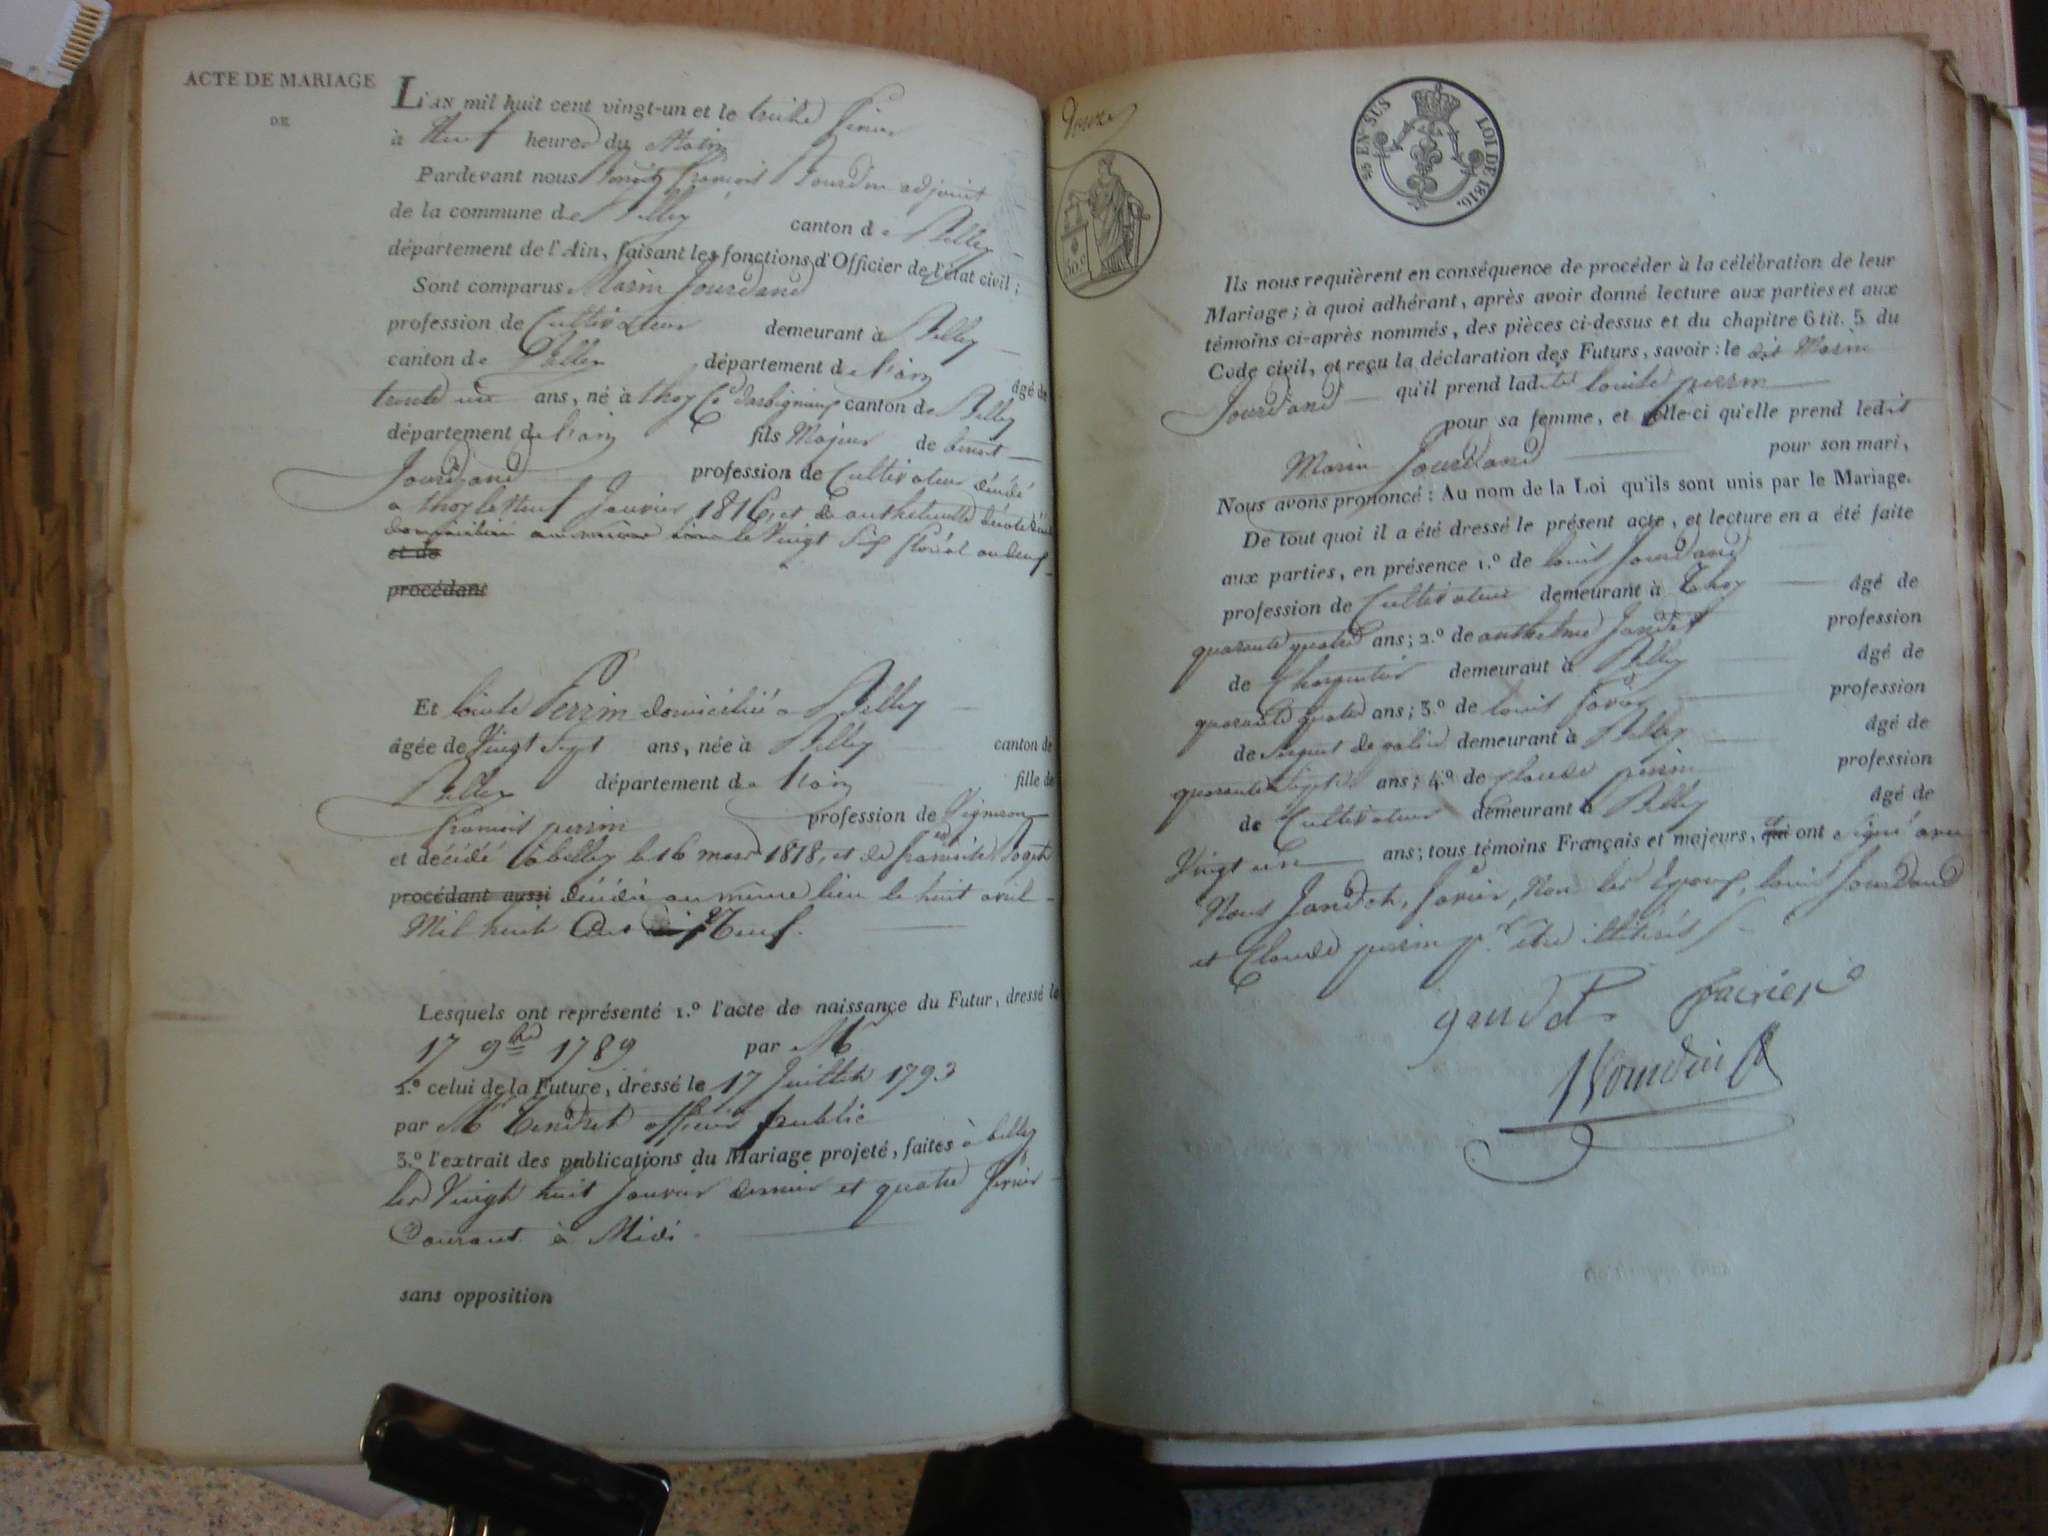 ACTE DE MARIAGE
DE
L'AN mil huit cent vingt-un et le treize fevrier
à Neuf heures du Matin
Pardevant nous Benoit François Bourdin adjoint
de la commune de Belley canton de Belley
département de l'Ain, faisant les fonctions d'Officier de l'état civil;
Sont comparus Marin Jourdand
profession de Cultivateur demeurant à Belley
canton de Belley département de l'ain âgé de
trente un ans, né à thoy Cne d'arbignieu canton de Belley
département de l'ain fils Majeur de benoit
Jourdand profession de Cultivateur décédé
a thoy le Neuf Janvier 1816, et de anthelmette
le Vingt Six floréal an deux
et de
procédant
Et Louise Perrin domiciliée a Belley
âgée de Vingt Sept ans, née à Belley canton de
Belley département de l'ain fille de
François perrin profession de Vigneron
et décédé à belley le 16 mars 1818, et de françoise
procédant aussi décédée au même lieu le huit avril
Mil huit Cent Neuf.
Lesquels ont représenté 1.º l'acte de naissance du Futur, dressé le
17 9bre 1789 par Mr
2.º celui de la Future, dressé le 17 Juillet 1793
par Mr Tendret officier public
3.º l'extrait des publications du Mariage projeté, faites à belley
les Vingt huit Janvier dernier et quatre fevrier
Courant à Midi.
sans opposition
douze
30 c.
25 EN SUS LOI DE 1816.
Ils nous requièrent en conséquence de procéder à la célébration de leur
Mariage; à quoi adhérant, après avoir donné lecture aux parties et aux
témoins ci-après nommés, des pièces ci-dessus et du chapitre 6 tit. 5 du
Code civil, et reçu la déclaration des Futurs, savoir: le dit Marin
Jourdand qu'il prend ladite Louise perrin
pour sa femme, et celle-ci qu'elle prend ledit
Marin Jourdand pour son mari,
Nous avons prononcé: Au nom de la Loi qu'ils sont unis par le Mariage.
De tout quoi il a été dressé le présent acte, et lecture en a été faite
aux parties, en présence 1.º de Louis Jourdand
profession de Cultivateur demeurant à Thoy âgé de
quarante quatre ans; 2.º de anthelme Jandet profession
de Charpentier demeurant à Belley âgé de
quarante quatre ans; 3.º de Louis favier profession
de Sergent de police demeurant à Belley âgé de
quarante ans; 4.º de Claude perrin profession
de Cultivateur demeurant à Belley âgé de
Vingt un ans; tous témoins Français et majeurs, qui ont signé avec
Nous Jandet, favier, Non les Epoux, Louis Jourdand
et Claude perrin pr. être illitérés
gandet favier
Bourdin